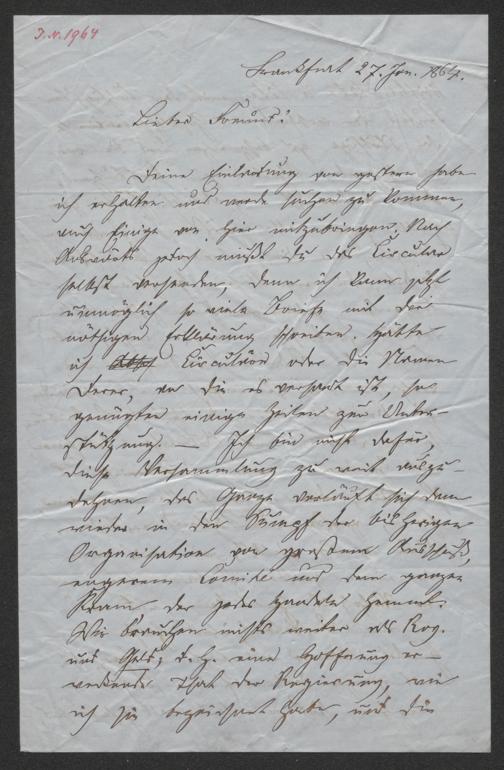 J. N. 1964
Frankfurt 27. Jan. 1864.
Lieber Freund!
Deine Einladung von gestern habe
ich erhalten und werde suchen zu kommen,
auch Einige von hier mitzubringen. Nach
Auswärts jedoch mußt Du das Circular
selbst versenden, denn ich kann jetzt
unmöglich so viele Briefe mit der
nöthigen Erklärung schreiben. Hätte
ich Circuläre oder die Namen
Derer, an die es versandt ist, so
genügten einige Zeilen zur Unter-
stützung. — Ich bin nicht dafür,
diese Versammlung zu weit auszu-
dehnen, das Ganze verläuft sich dann
wieder in den Sumpf der bisherigen
Organisation von großem Ausschuß,
engerem Comité und dem ganzen
Kram, der jedes Handeln hemmt.
Wir brauchen nichts weiter als Reg.
und Geld; d. h. eine Hoffnung er-
weckende That der Regierung, wie
ich sie bezeichnet habe, und die